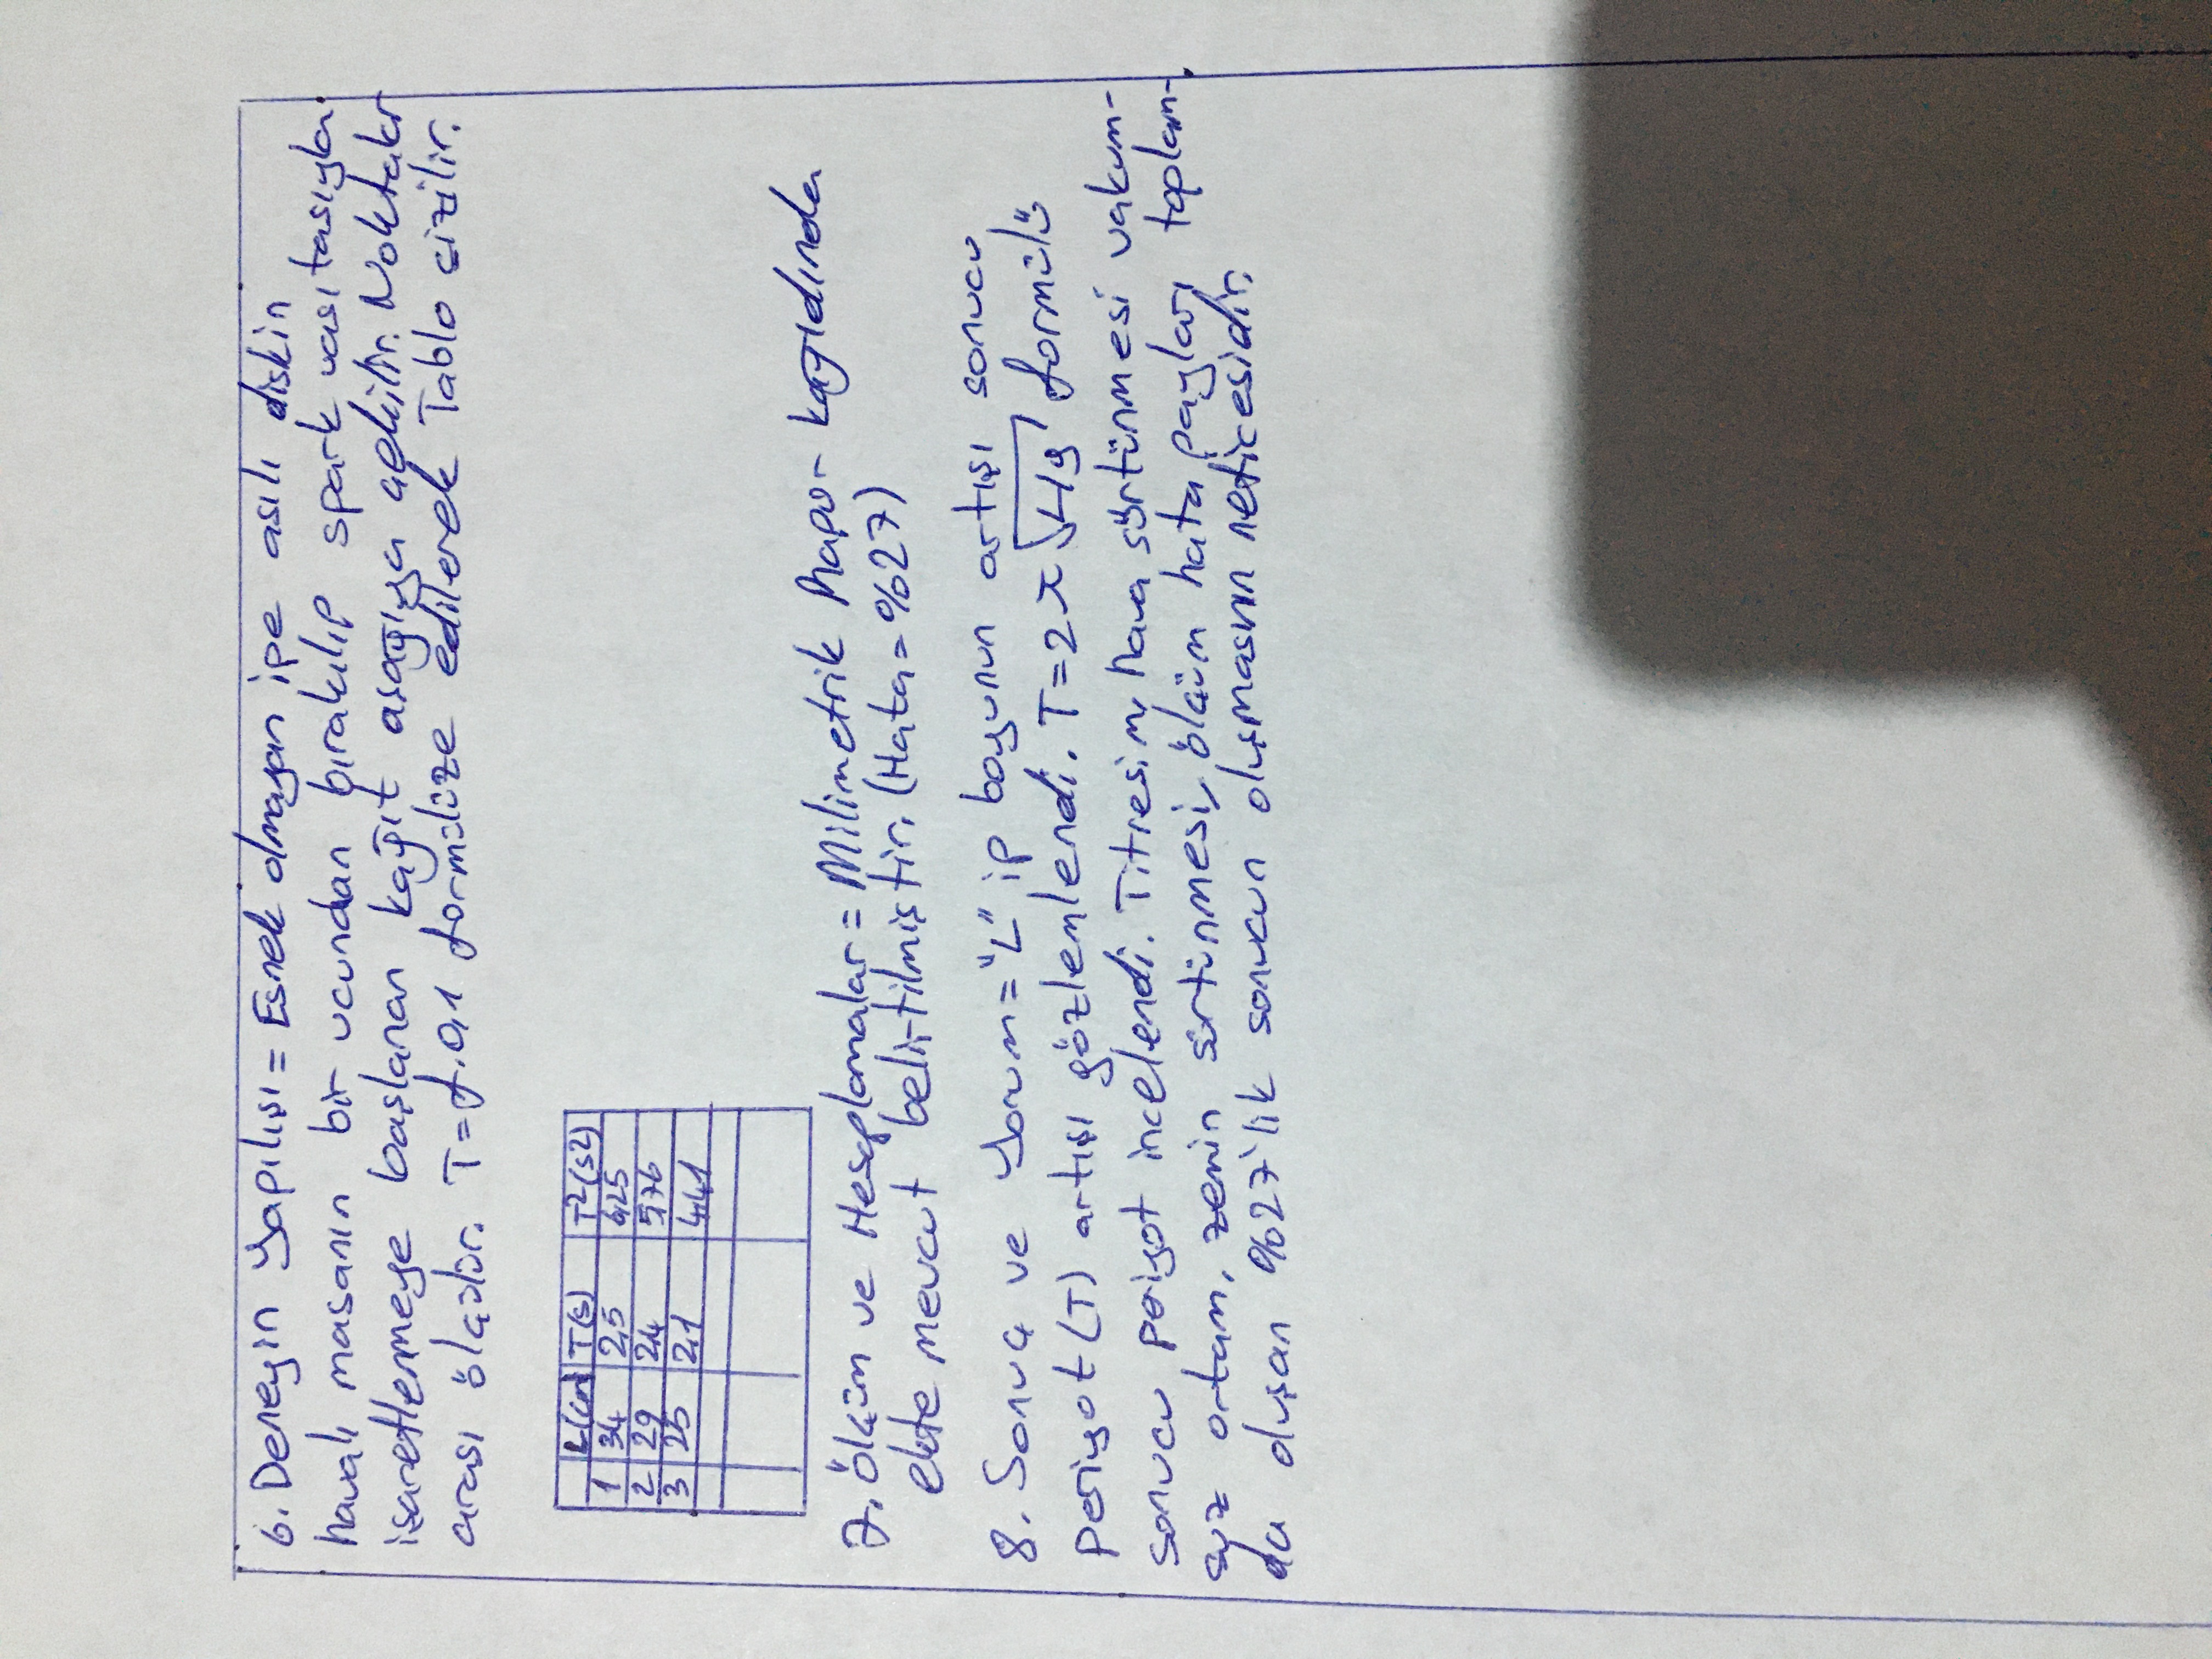 6. Deneyin Yapılışı = Esnek olmayan ipe asılı diskin
havalı masanın bir ucundan bırakılıp spark vasıtasıyla
işaretlenmeye başlanan kağıt aşağıya çekilir. Noktalar
arası ölçülür. T=f.0,1 formülüze edilerek Tablo çizilir.
L(cm) T(s) T²(s²)
1 34 2,5 6,25
2 29 2,4 5,76
3 25 2,1 4,41
7. Ölçüm ve Hesaplamalar = Milimetrik Rapor kağıdında
ekte mevcut belirtilmiştir. (Hata = %27)
8. Sonuç ve Yorum = "L" ip boyunun artışı sonucu
periyot (T) artışı gözlemlendi. T=2π√L/g formülü
sonucu periyot incelendi. Titresim, hava sürtünmesi vakum-
suz ortam, zemin sürtünmesi, ölçüm hata payları toplam-
da oluşan %27'lik sonucun oluşmasının neticesidir.